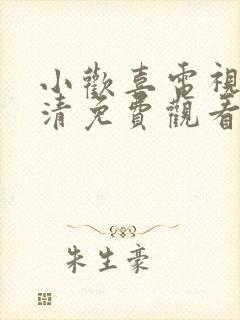 小歡喜電視
清免費觀看
朱生豪